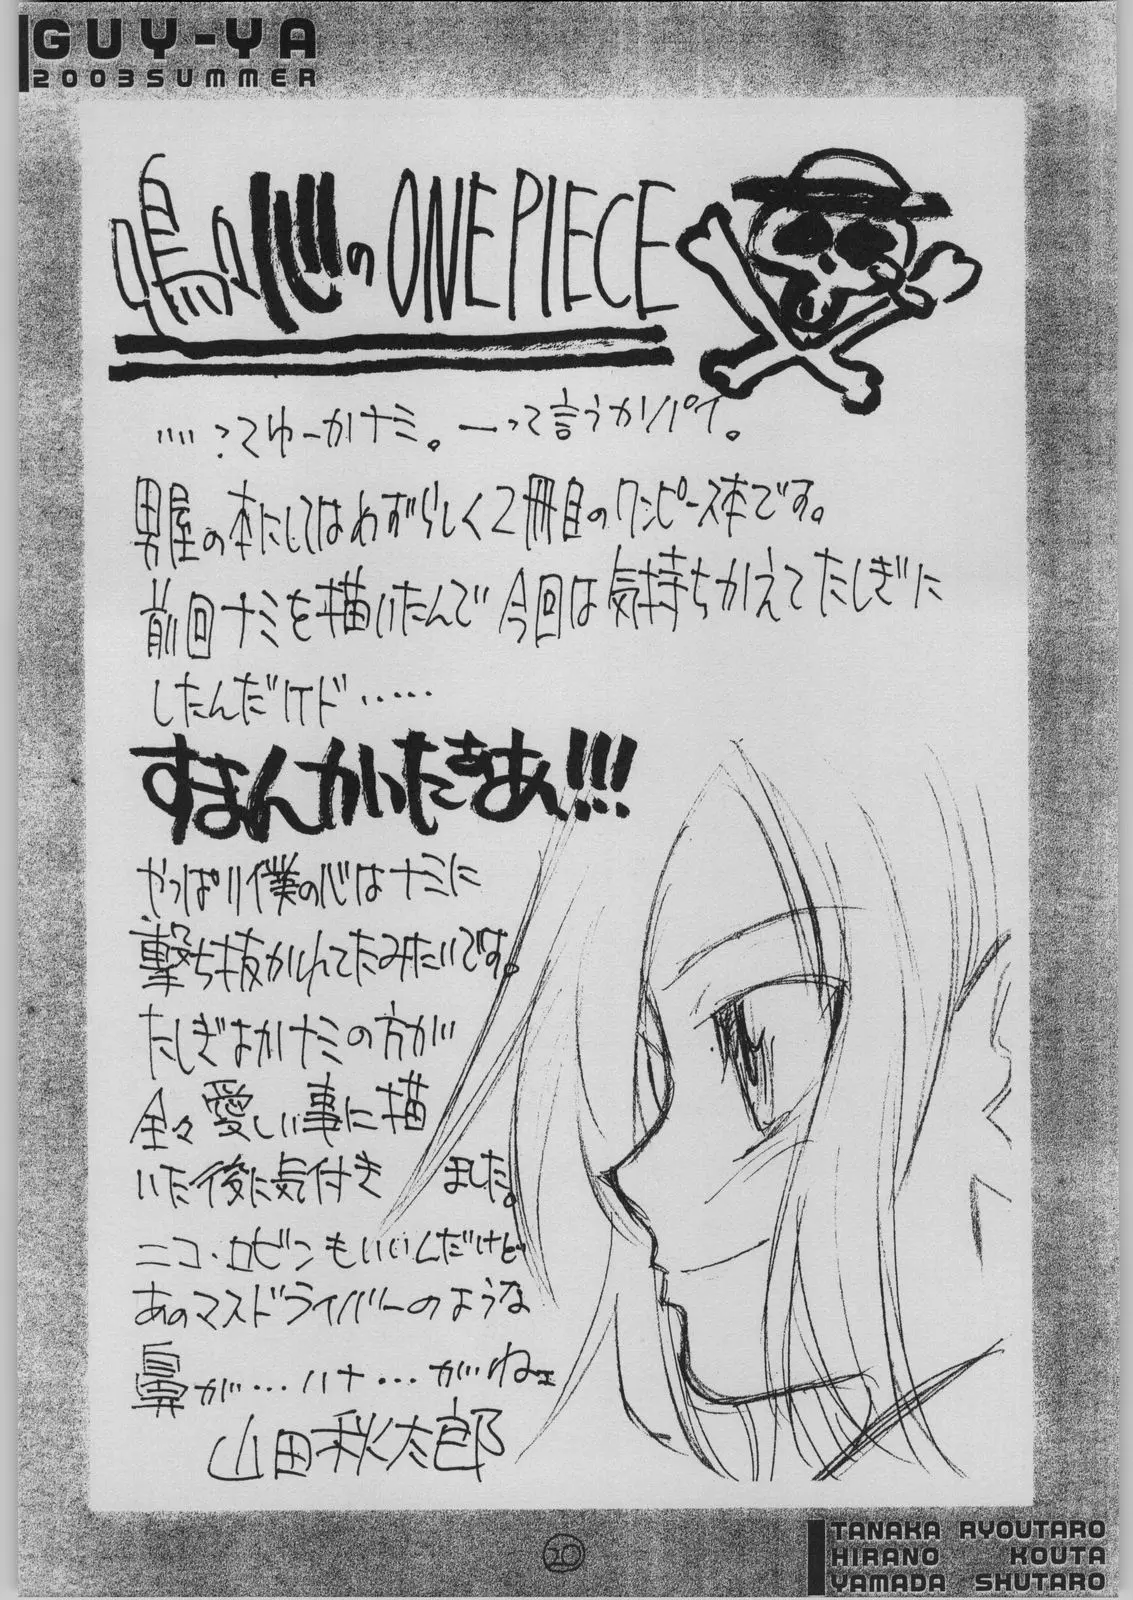 GUY-YA
2003SUMMER
鳴心のONE PIECE
…？てゆーかナミ。―って言うかパイ。
男屋の本にしてはめずらしく2冊目のワンピース本です。
前回ナミを描いたんで今回は気持ちかえてたしぎに
したんだけド……
すまんかいたぁあん!!!
やっぱり僕の心はナミに
撃ち抜かれてたみたいです。
たしぎよかナミの方が
全々愛しい事に描
いた後に気付き ました。
ニコ・ロビンもいいんだけど
あのマスドライバーのような
鼻が…ハナ…がねェ
山田秋太郎
20
TANAKA RYOUTARO
HIRANO KOUTA
YAMADA SHUTARO